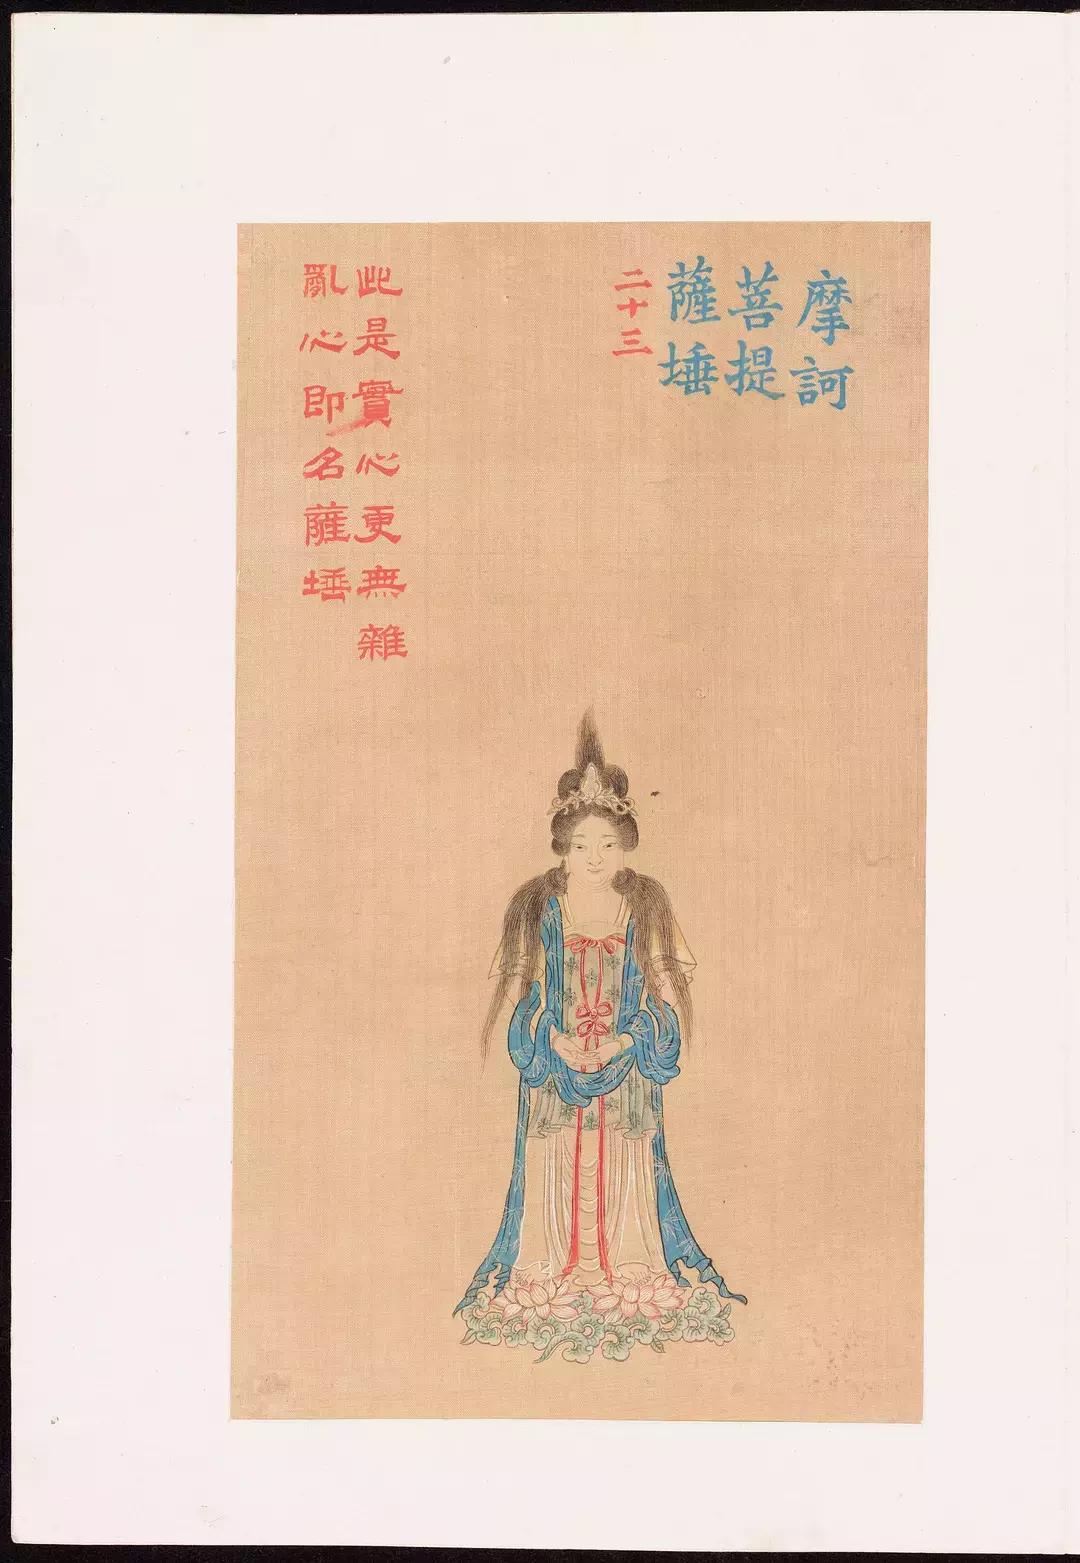 摩訶
菩提
薩埵
二十三
此是實心更無雜
亂心即名薩埵